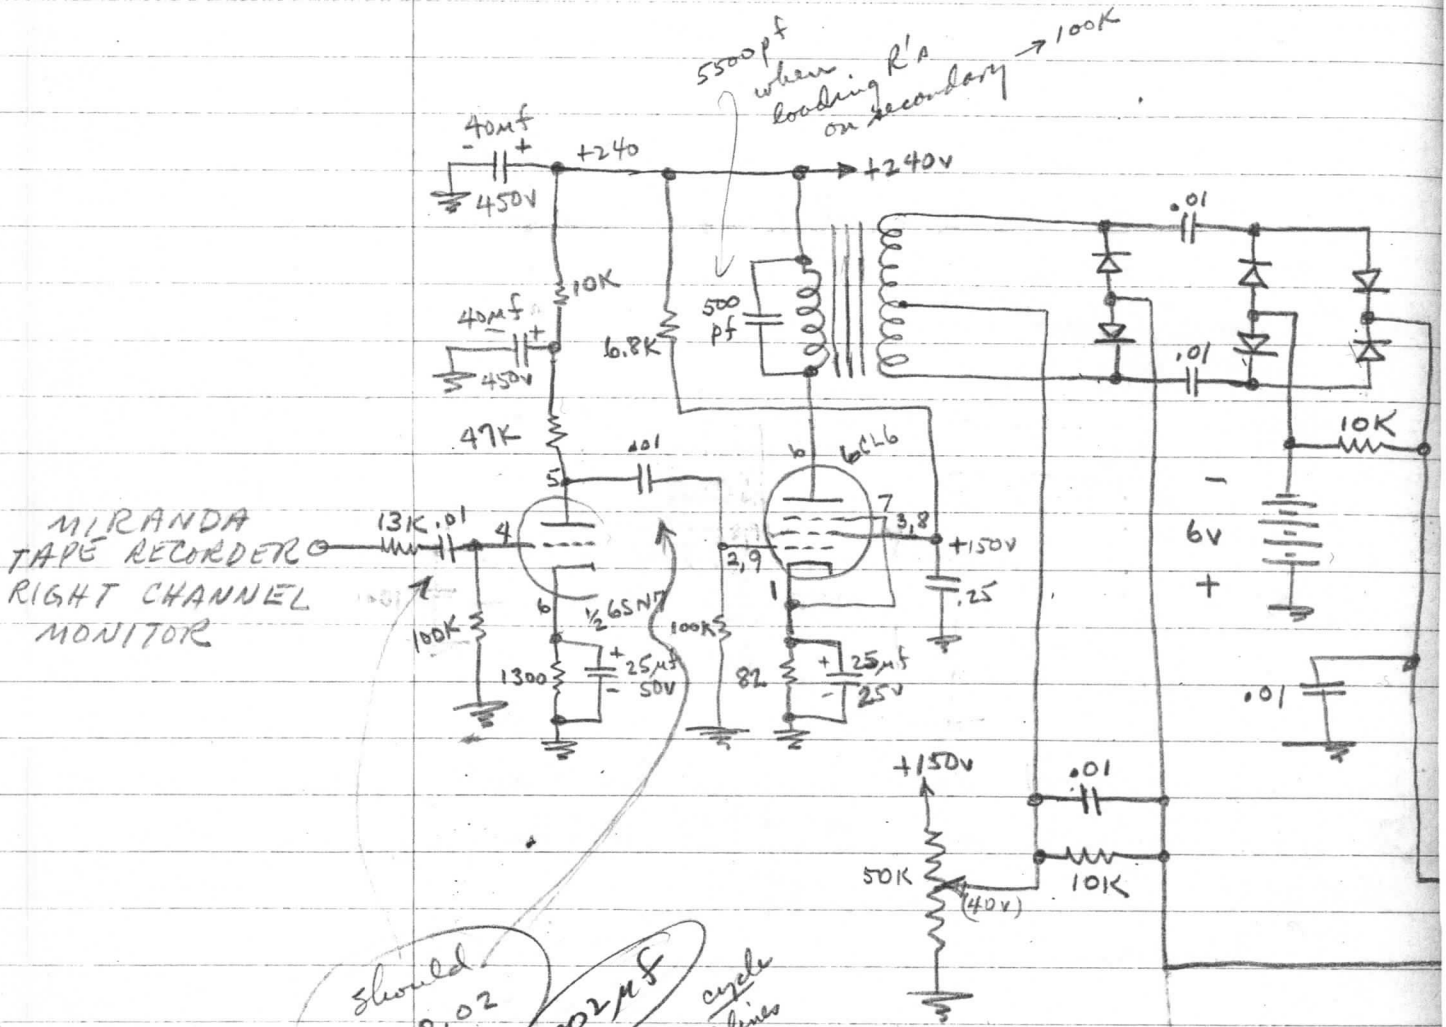 5500pf
when
loading R's
on secondary → 100K
40µf
- +
+240
+240v
450v
.01
10K
40µf
+
450v
500
pf
6.8K
.01
47K
.01
10K
5
6
6CL6
7
3,8
-
MIRANDA
TAPE RECORDER
RIGHT CHANNEL
MONITOR
13K
.01
4
2,9
+150v
6v
+
.25
6
½ 6SN7
1
100K
100K
1300
+
25µf
-
50v
82
+
25µf
-
25v
.01
+150v
.01
50K
10K
(40v)
should
.02
02µf
cycle
lines